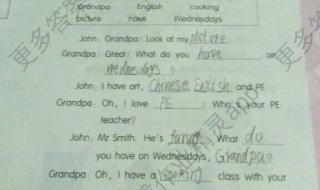 Grandpa English cooking
picture have Wednesdays
John: Grandpa! Look at my picture
Grandpa: Great! What do you have on
Wednesdays ?
John: I have art, Chinese, English and PE.
Grandpa: Oh, I love PE ! Who's your PE
teacher?
John: Mr Smith. He's funny. What do
you have on Wednesdays, Grandpa?
Grandpa: Oh, I have a cooking class with your
更多答案